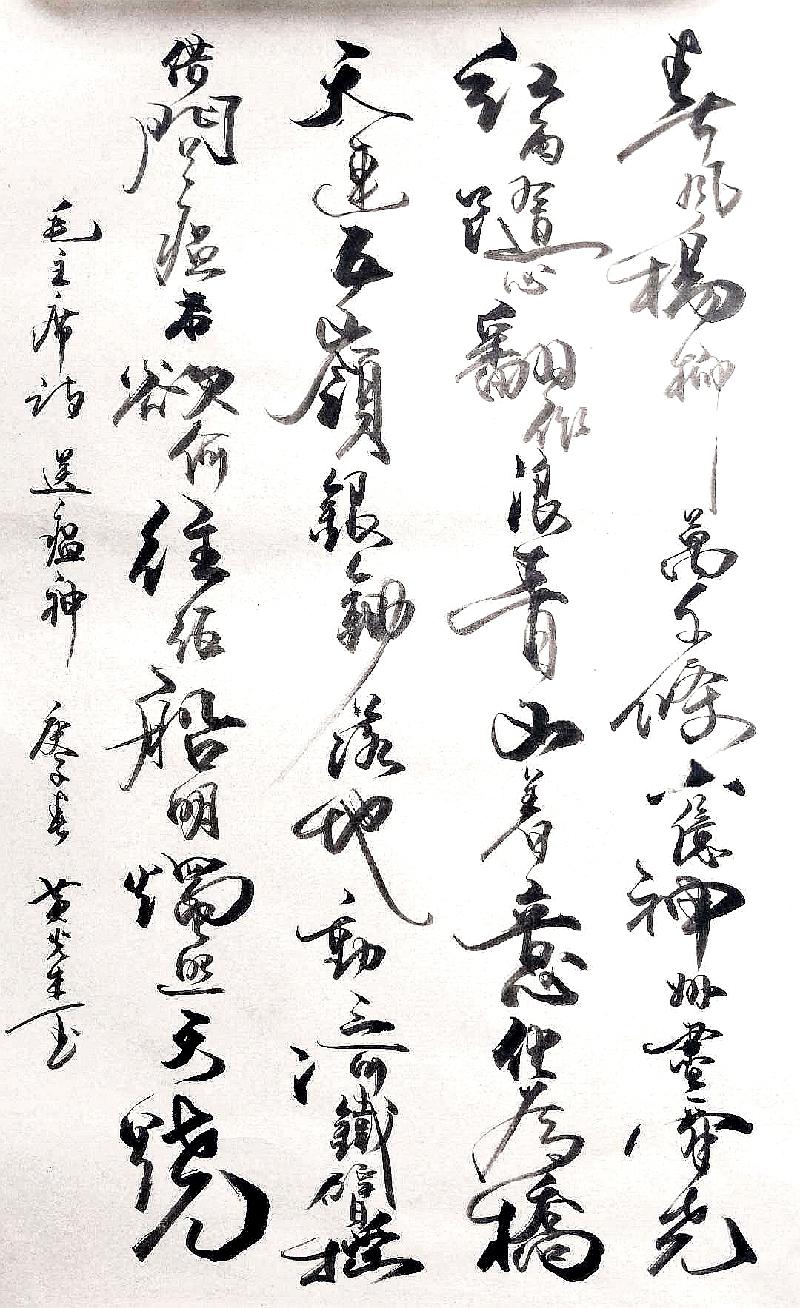 春風楊柳萬千條六億神州盡舜堯
紅雨隨心翻作浪青山着意化為橋
天連五嶺銀鋤落地動三河鐵臂搖
借問瘟君欲何往紙船明燭照天燒
毛主席詩 送瘟神 庚子春 黄